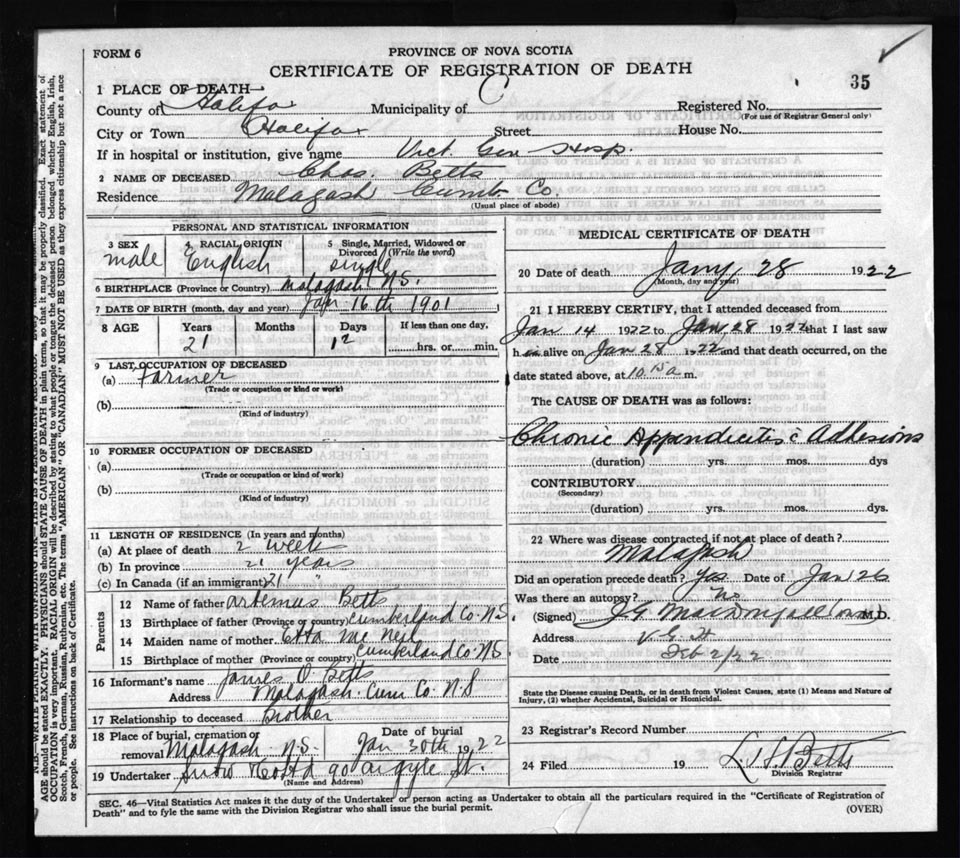 FORM 6
PROVINCE OF NOVA SCOTIA
CERTIFICATE OF REGISTRATION OF DEATH
35
1 PLACE OF DEATH
County of Halifax Municipality of Registered No.
(For use of Registrar General only)
City or Town Halifax Street House No.
If in hospital or institution, give name Vict. Gen Hosp.
2 NAME OF DECEASED Chas. Betts
Residence Malagash Cumb Co.
(Usual place of abode)
PERSONAL AND STATISTICAL INFORMATION
3 SEX male
4 RACIAL ORIGIN English
5 Single, Married, Widowed or Divorced (Write the word) single
6 BIRTHPLACE (Province or Country) Malagash N.S.
7 DATE OF BIRTH (month, day and year) Jan 16th 1901
8 AGE Years Months Days If less than one day,
21 12 hrs. or min.
9 LAST OCCUPATION OF DECEASED
(a) Farmer
(Trade or occupation or kind or work)
(b)
(Kind of industry)
10 FORMER OCCUPATION OF DECEASED
(a)
(Trade or occupation or kind of work)
(b)
(Kind of industry)
11 LENGTH OF RESIDENCE (In years and months)
(a) At place of death 2 weeks
(b) In province 21 years
(c) In Canada (if an immigrant) 21 "
Parents
12 Name of father Artemas Betts
13 Birthplace of father (Province or country) Cumberland Co. N.S.
14 Maiden name of mother Etta Mc Neil
15 Birthplace of mother (Province or country) Cumberland Co. N.S.
16 Informant's name James O. Betts
Address Malagash. Cum Co. N.S
17 Relationship to deceased Brother
18 Place of burial, cremation or removal Malagash N.S. Date of burial Jan 30th 1922
19 Undertaker Snow 90 Argyle St.
(Name and Address)
MEDICAL CERTIFICATE OF DEATH
20 Date of death Jany, 28 1922
(Month, day and year)
21 I HEREBY CERTIFY, that I attended deceased from
Jan 14 1922 to Jan 28 1922 that I last saw
h im alive on Jan 28 1922 and that death occurred, on the
date stated above, at a m.
The CAUSE OF DEATH was as follows:
Chronic Appendicitis c Adhesions
(duration) yrs. mos. dys
CONTRIBUTORY
(Secondary)
(duration) yrs. mos. dys.
22 Where was disease contracted if not at place of death?
Malagash
Did an operation precede death? Yes Date of Jan 26
Was there an autopsy? No
(Signed) J G MacDougall M.D.
Address V. G. H
Date Feb 2/22
State the Disease causing Death, or in death from Violent Causes, state (1) Means and Nature of
Injury, (2) whether Accidental, Suicidal or Homicidal.
23 Registrar's Record Number
24 Filed 19 Betts
Division Registrar
SEC. 46—Vital Statistics Act makes it the duty of the Undertaker or person acting as Undertaker to obtain all the particulars required in the "Certificate of Registration of
Death" and to fyle the same with the Division Registrar who shall issue the burial permit.
(OVER)
AGE should be stated EXACTLY. PHYSICIANS should STATE CAUSE OF DEATH in plain terms, so that it may be properly classified. Exact statement of
OCCUPATION is very important. RACIAL ORIGIN will be described by stating to what people or tongue the deceased person belonged whether English, Irish,
Scotch, French, German, Russian, Ruthenian, etc. The terms "AMERICAN" OR "CANADIAN" MUST NOT BE USED as they express citizenship but not a race
or people. See instructions on back of Certificate.